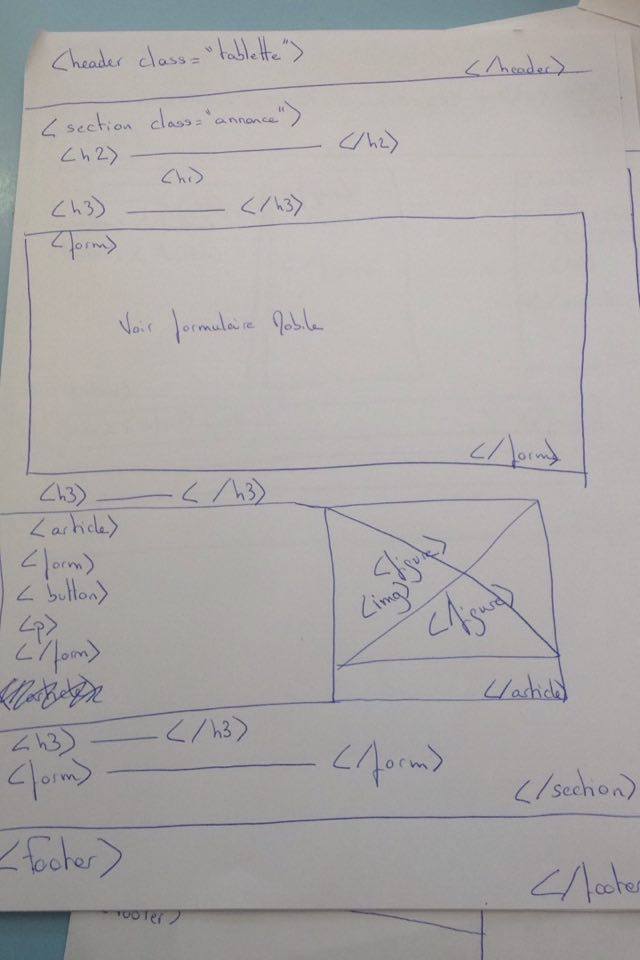 <header class="tablette">
</header>
<section class="annonce">
<h2) </h2)
<hr>
<h3) </h3)
<form>
Voir formulaire Mobile
</form>
<h3) </h3)
<article>
<form>
<button>
<p>
</form>
<figure>
<img>
</figure>
</article>
<h3) </h3)
<form> </form>
</section>
<footer>
</footer
footer>